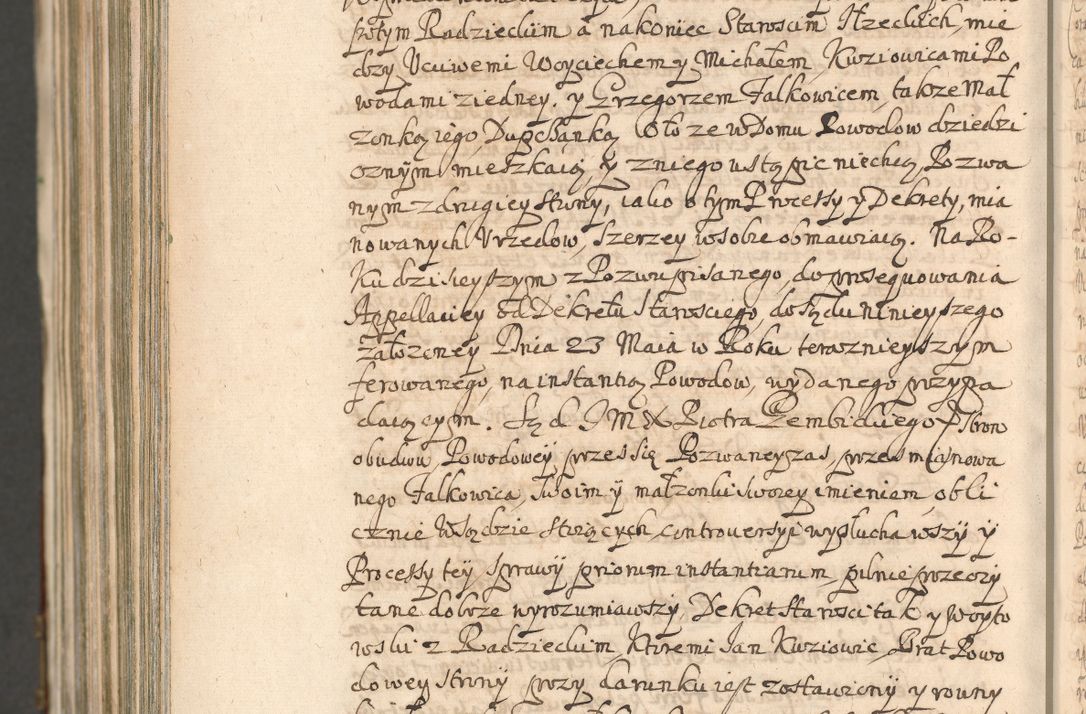 potym Radzieckim a nakoniec Staroscim Rzeckich, mie
dzy Vcciwemi Woyciechem y Michałem, Kuziowicami Po
wodami ziedney. y Grzegorzem Falkowicem, takze Mał
zonką iego, Dupcsanką Oto ze w Domu Powodow dziedzi
cznym mieszkaią, y zniego ustąpic niechcą, Pozwa
nym zdrugiey strony, iako o tym Processy y Dekrety, mia
nowanych Vrzedow, szerzey w sobie obmawiaią. Na Ro-
ku dzisieyszym z Pozwu pisanego, do prosequowania
Appellaciey od Dekretu Starosciego, do Sądu ninieyszego
załozoney Dnia 23 Maia w Roku teraznieyszym
ferowanego, na instantią Powodow, wydanego przypa
daiącym. Sąd I M X Piotra Gembickiego Stron
obudwu, Powodowey przes się Pozwaney zas, przes mianowa
nego Falkowica, swoim y małzonki swoiey imieniem, obli
cznie W Sądzie stoiących, controversyi wysłuchawszy y
Processy tey sprawy priorum instantiarum, pilnie przeczy
tane dobrze wyrozumiawszy, Dekret Starosci tak y Woyto
wski z Radzieckim, Ktoremi Jan Kuziowic, Brat Powo
dowey strony przy darunku iest zostawiony y rowny